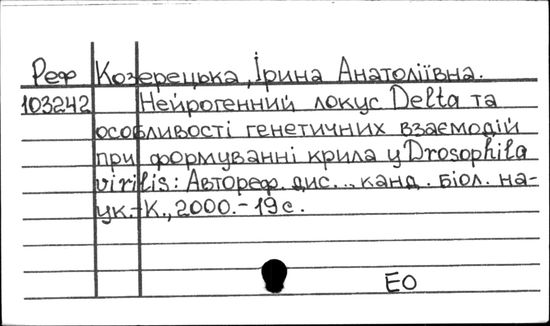 Реф Козерецька, Ірина Анатоліївна.
103242 Нейрогенний локус Delta та
особливості генетичних взаємодій
при формуванні крила у Drosophila
virilis: Автореф. дис... канд. біол. на-
ук.-К., 2000.-19с.
ЕО